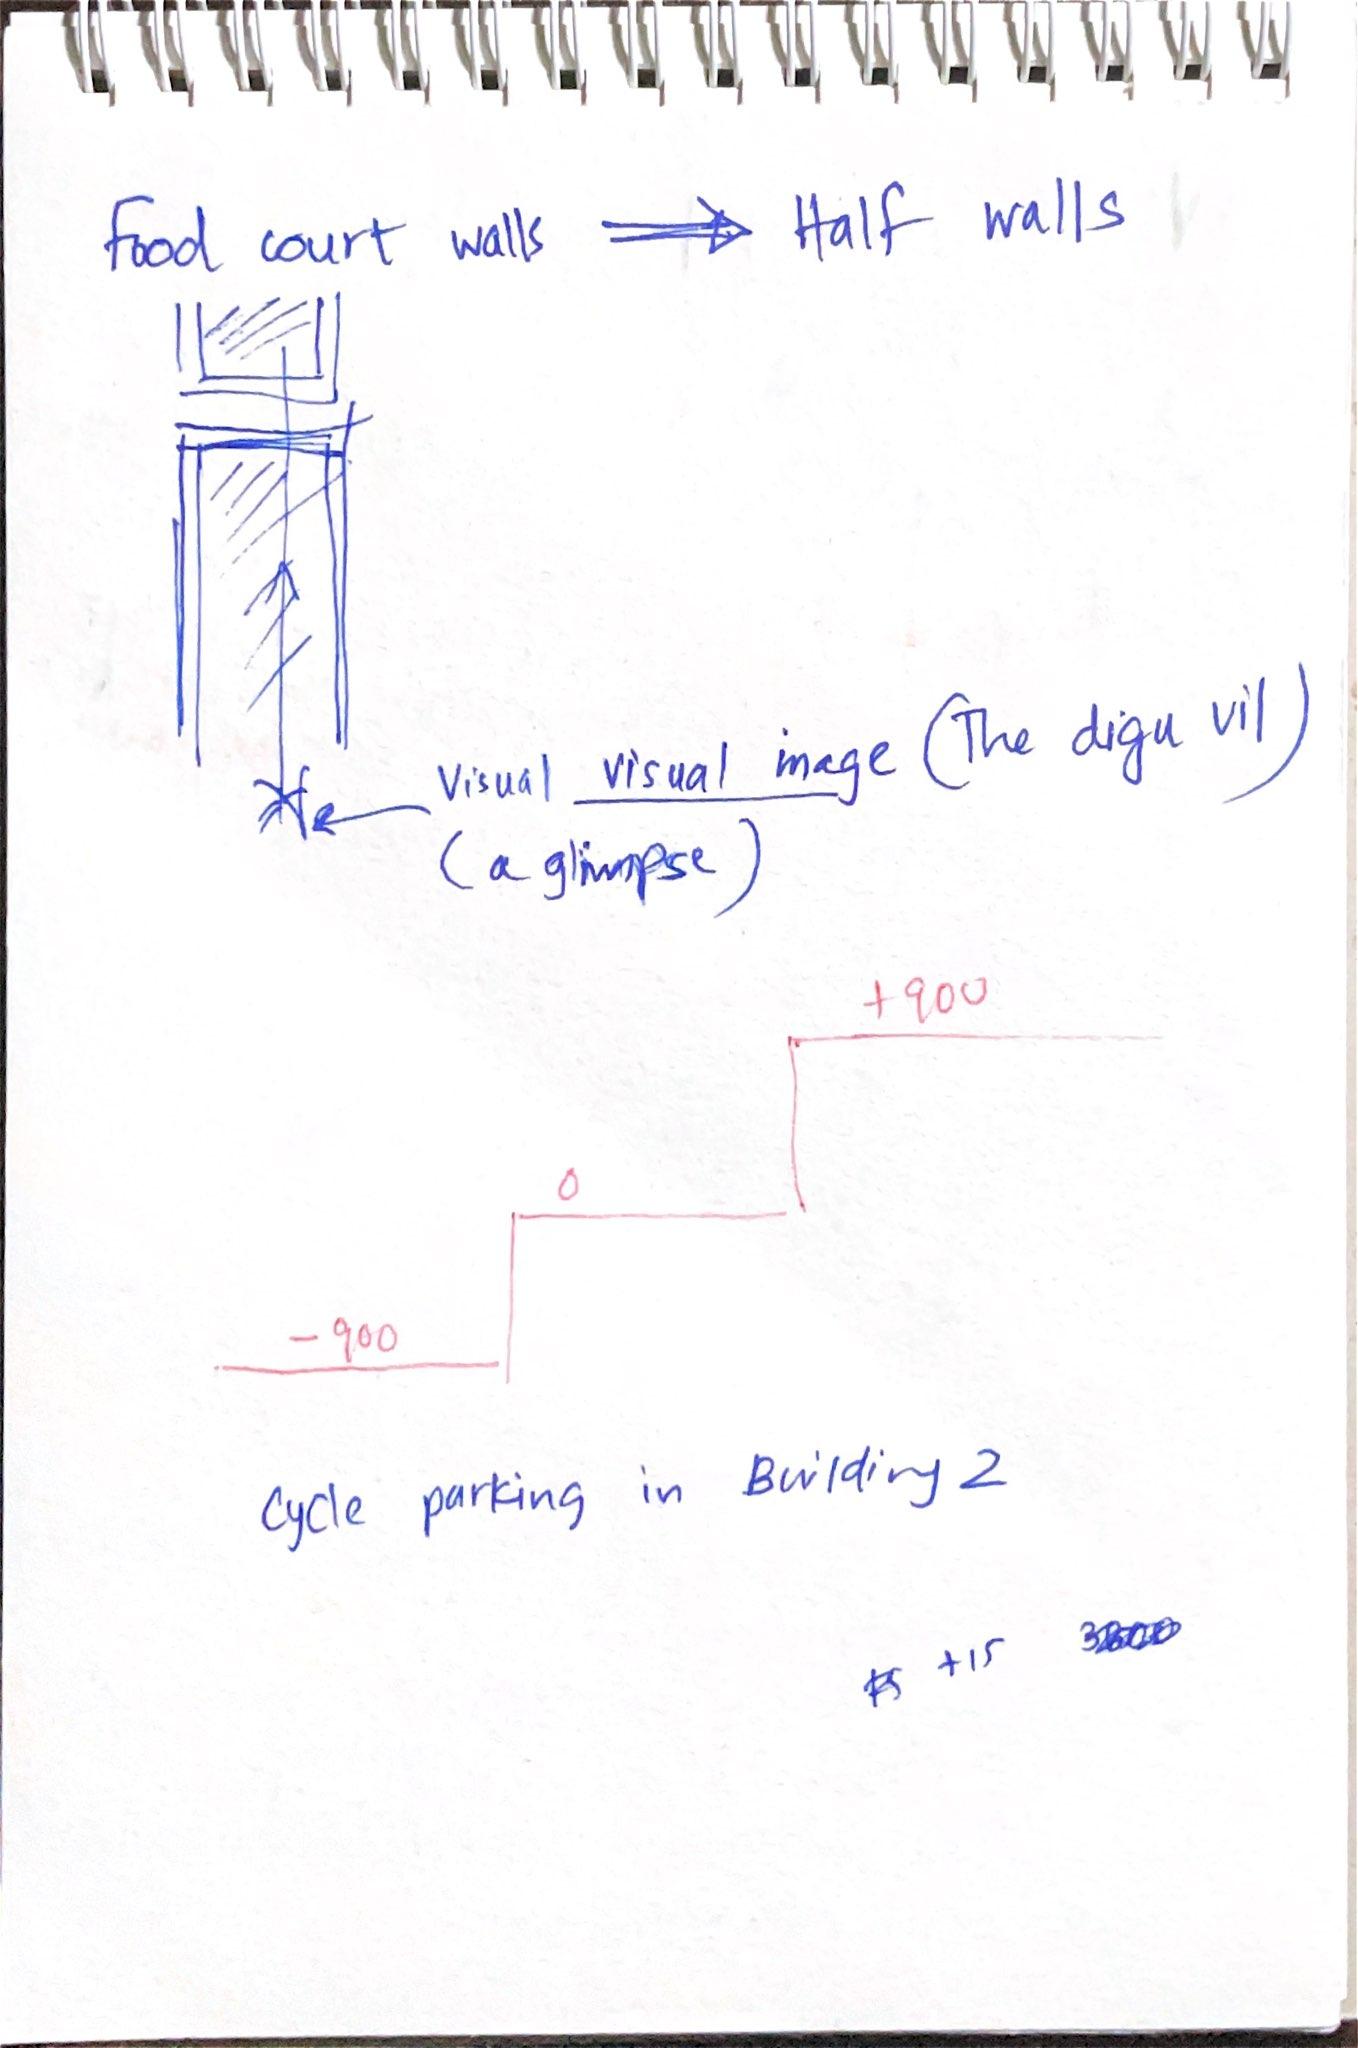 Food court walls ⟹ Half walls
Visual visual image (The digu vil)
(a glimpse)
+900
0
-900
Cycle parking in Building 2
+15